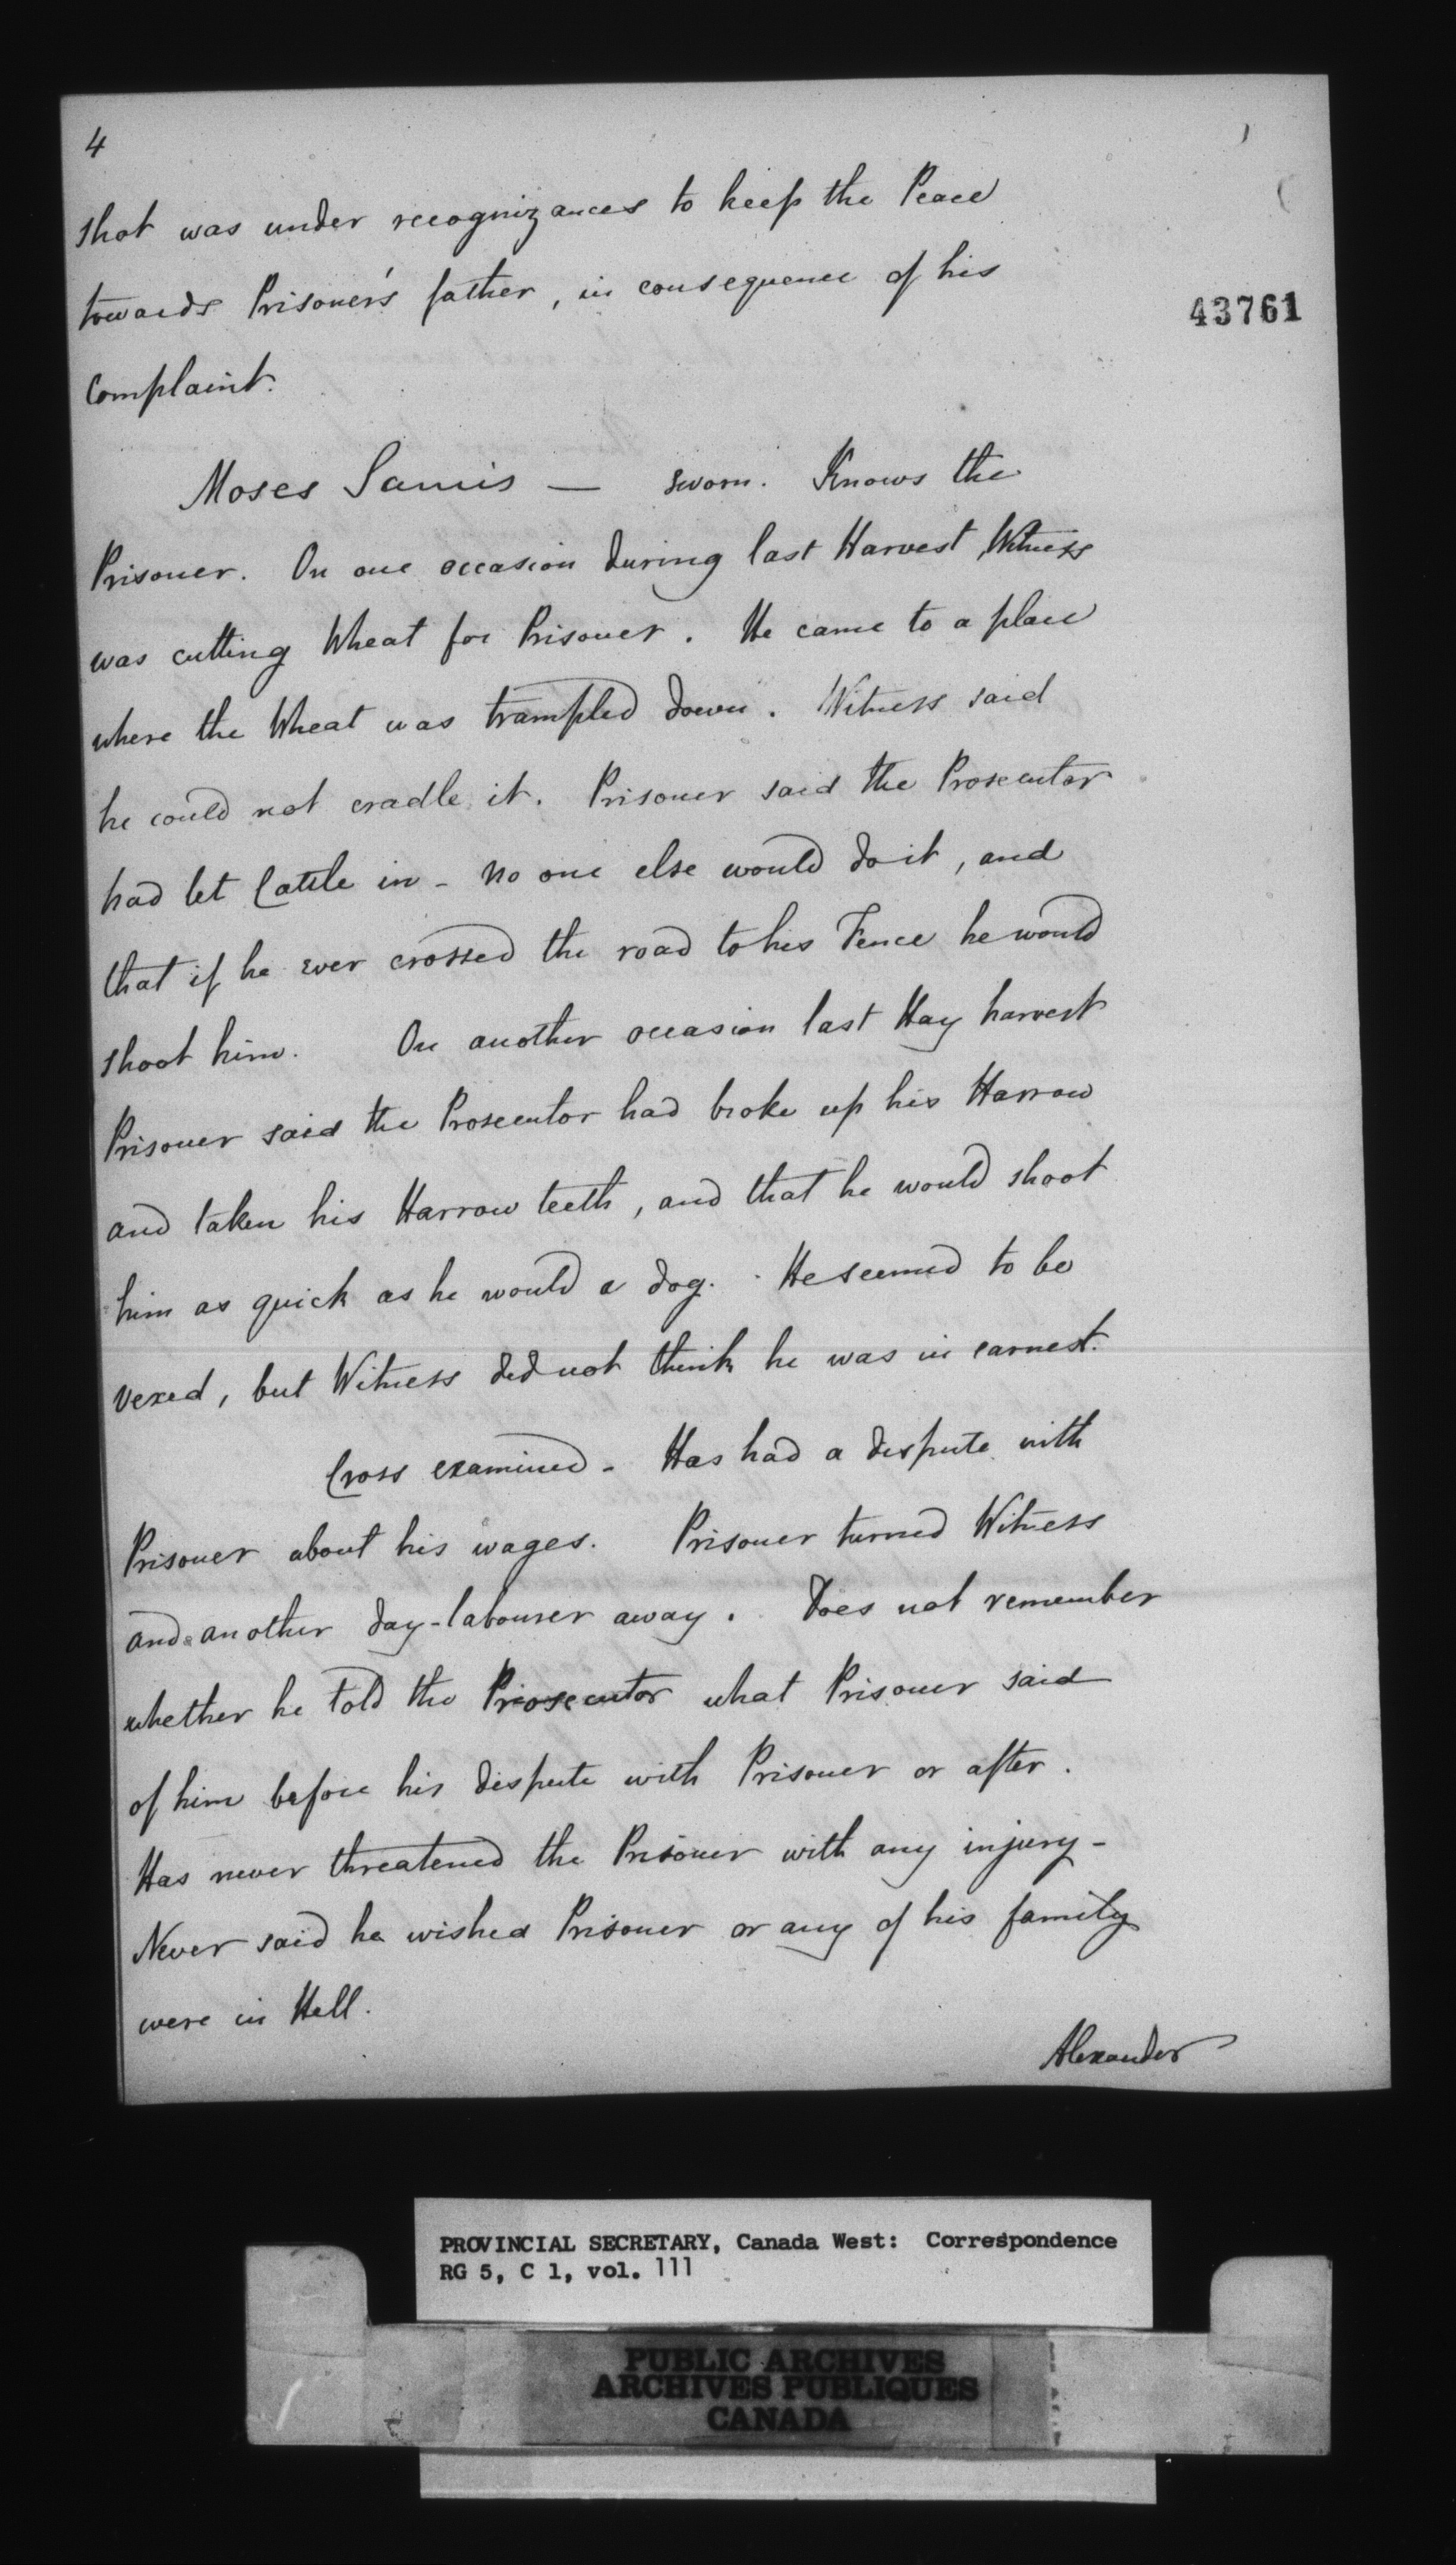 4
shot was under recognizances to keep the Peace
towards Prisoner's father, in consequence of his
43761
Complaint.
Moses Samis — sworn. Knows the
Prisoner. On one occasion during last Harvest, Witness
was cutting Wheat for Prisoner. He came to a place
where the Wheat was trampled down. Witness said
he could not cradle it. Prisoner said the Prosecutor
had let Cattle in - no one else would do it, and
that if he ever crossed the road to his Fence he would
shoot him. On another occasion last Hay harvest
Prisoner said the Prosecutor had broke up his Harrow
and taken his Harrow teeth, and that he would shoot
him as quick as he would a dog. He seemed to be
vexed, but Witness did not think he was in earnest.
Cross examined - Has had a dispute with
Prisoner about his wages. Prisoner turned Witness
and another day-labourer away. Does not remember
whether he told the Prosecutor what Prisoner said
of him before his dispute with Prisoner or after.
Has never threatened the Prisoner with any injury -
Never said he wished Prisoner or any of his family
were in Hell.
Alexander
PROVINCIAL SECRETARY, Canada West: Correspondence
RG 5, C 1, vol. 111
PUBLIC ARCHIVES
ARCHIVES PUBLIQUES
CANADA